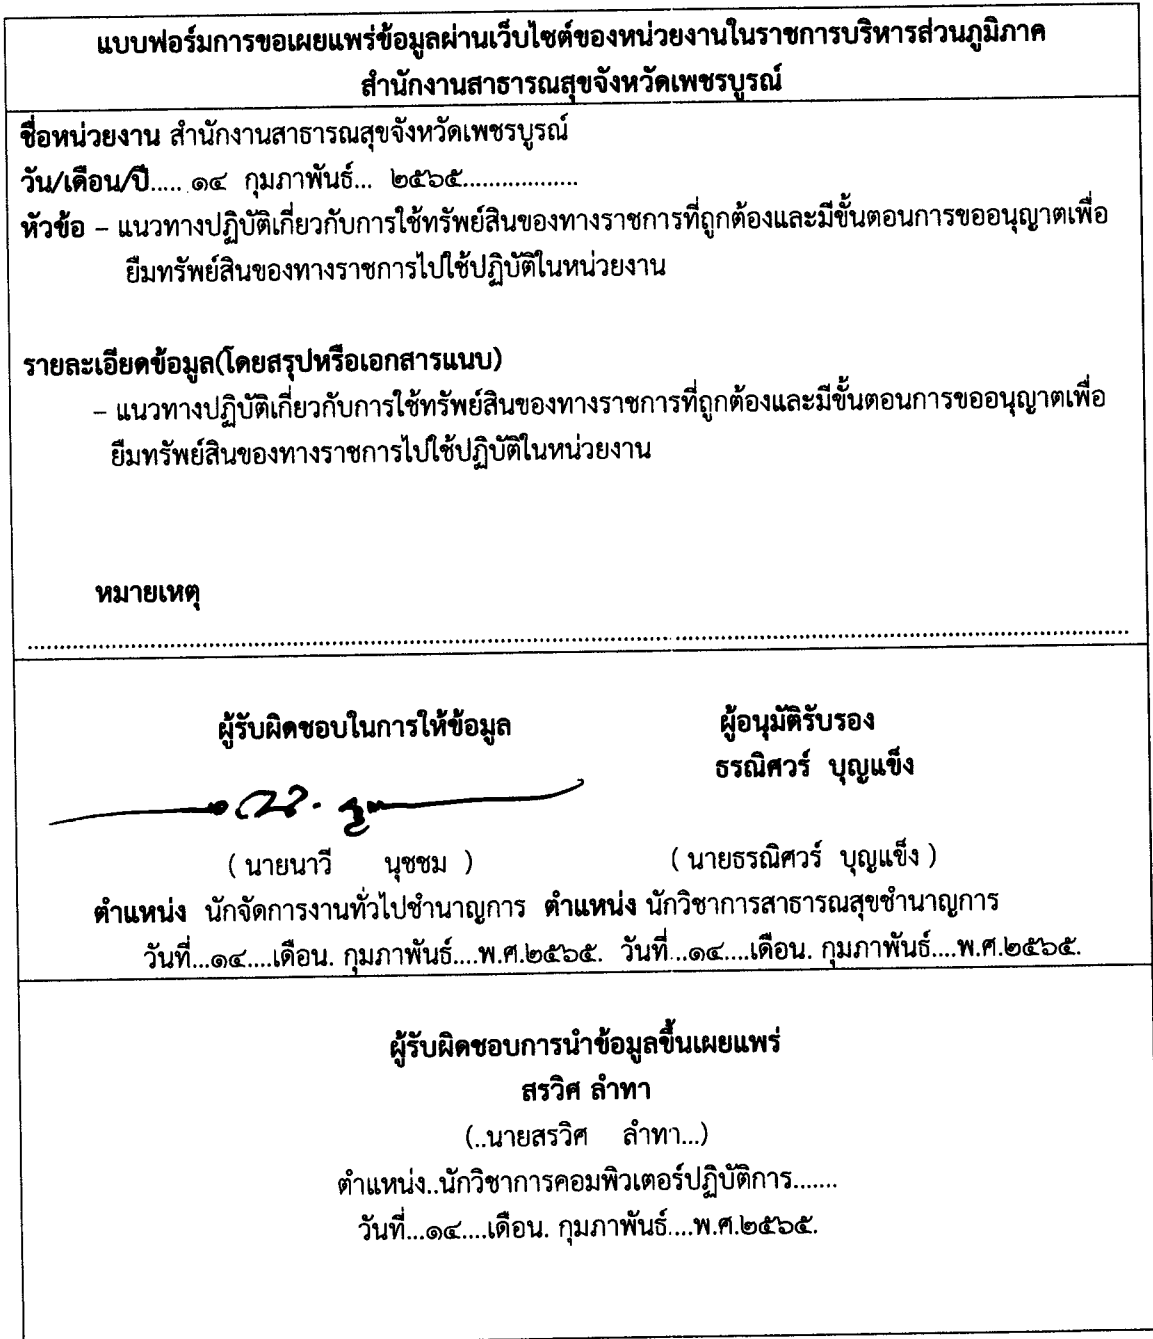 แบบฟอร์มการขอเผยแพร่ข้อมูลผ่านเว็บไซต์ของหน่วยงานในราชการบริหารส่วนภูมิภาค
สำนักงานสาธารณสุขจังหวัดเพชรบูรณ์
ชื่อหน่วยงาน สำนักงานสาธารณสุขจังหวัดเพชรบูรณ์
วัน/เดือน/ปี..... ๑๔ กุมภาพันธ์... ๒๕๖๕..................
หัวข้อ – แนวทางปฏิบัติเกี่ยวกับการใช้ทรัพย์สินของทางราชการที่ถูกต้องและมีขั้นตอนการขออนุญาตเพื่อ
ยืมทรัพย์สินของทางราชการไปใช้ปฏิบัติในหน่วยงาน
รายละเอียดข้อมูล(โดยสรุปหรือเอกสารแนบ)
– แนวทางปฏิบัติเกี่ยวกับการใช้ทรัพย์สินของทางราชการที่ถูกต้องและมีขั้นตอนการขออนุญาตเพื่อ
ยืมทรัพย์สินของทางราชการไปใช้ปฏิบัติในหน่วยงาน
หมายเหตุ
ผู้รับผิดชอบในการให้ข้อมูล ผู้อนุมัติรับรอง
ธรณิศวร์ บุญแข็ง
( นายนาวี นุชชม ) ( นายธรณิศวร์ บุญแข็ง )
ตำแหน่ง นักจัดการงานทั่วไปชำนาญการ ตำแหน่ง นักวิชาการสาธารณสุขชำนาญการ
วันที่...๑๔....เดือน. กุมภาพันธ์....พ.ศ.๒๕๖๕. วันที่...๑๔....เดือน. กุมภาพันธ์....พ.ศ.๒๕๖๕.
ผู้รับผิดชอบการนำข้อมูลขึ้นเผยแพร่
สรวิศ ลำทา
(..นายสรวิศ ลำทา...)
ตำแหน่ง..นักวิชาการคอมพิวเตอร์ปฏิบัติการ.......
วันที่...๑๔....เดือน. กุมภาพันธ์....พ.ศ.๒๕๖๕.